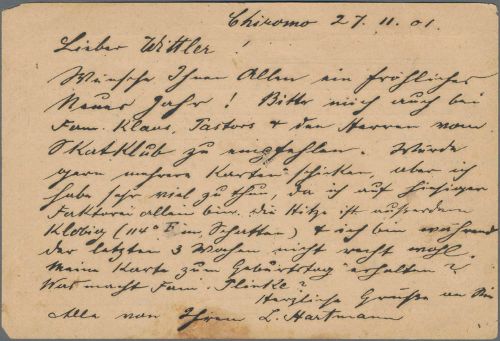 Chiromo 27. 11. 01.
Lieber Wittler!
Wünsche Ihnen Allen ein fröhliches
Neues Jahr! Bitte mich auch bei
Fam. Klaas, Pastors & den Herren vom
Skatklub zu empfehlen. Würde
gern mehrere Karten schicken, aber ich
habe sehr viel zu thun, da ich auf hiesiger
Faktorei allein bin. die Hitze ist außerdem
klobig (114° F im Schatten) & ich bin während
der letzten 3 Wochen nicht recht wohl.
Meine Karte zum Geburtstag erhalten?
Was macht Fam. Flinke?
Herzliche Grüsse an Sie
Alle von Ihrem L. Hartmann